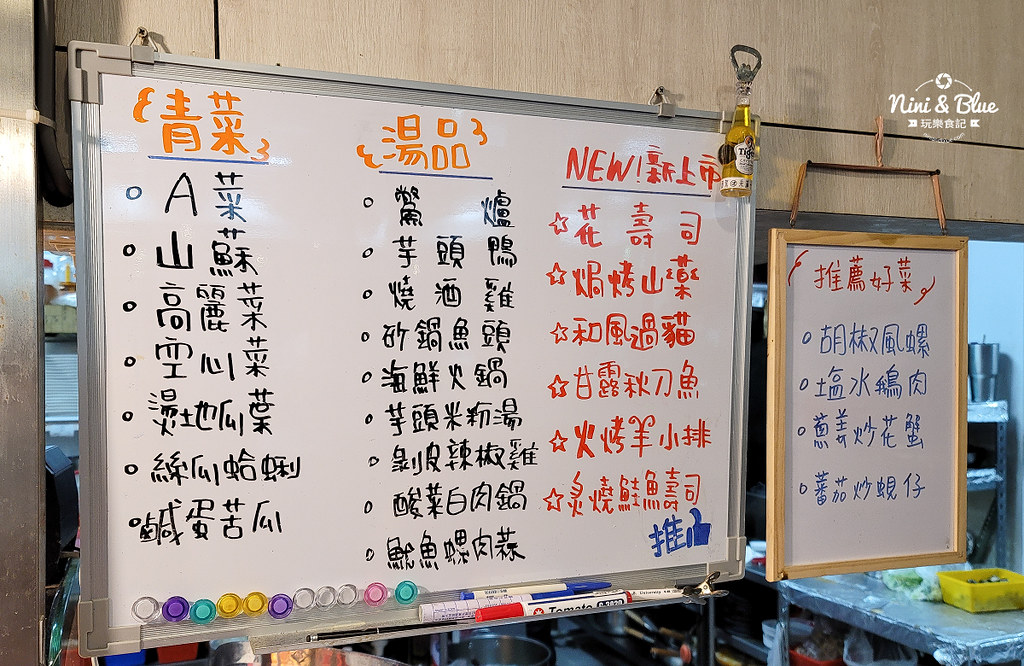 青菜
A菜
山蘇
高麗菜
空心菜
燙地瓜葉
絲瓜蛤蜊
鹹蛋苦瓜
湯品
鴛爐
芋頭鴨
燒酒雞
砂鍋魚頭
海鮮火鍋
芋頭米粉湯
剝皮辣椒雞
酸菜白肉鍋
魷魚螺肉蒜
NEW!新上市
花壽司
焗烤山藥
和風過貓
甘露秋刀魚
火烤羊小排
炙燒鮭魚壽司
推
Tiger
推薦好菜
胡椒風螺
塩水鵝肉
蔥姜炒花蟹
蕃茄炒蜆仔
Nini & Blue
玩樂食記